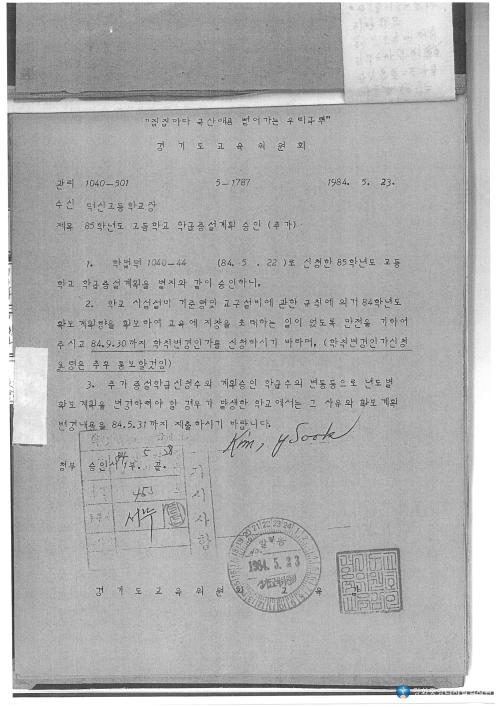 "집집마다 국산애용 뻗어가는 우리나라"
경 기 도 교 육 위 원 회
관리 1040-501 5-1787 1984. 5. 23.
수신 덕신고등학교장
제목 85학년도 고등학교 학급증설계획 승인 (추가)
1. 학법덕 1040-44 (84. 5. 22)로 신청한 85학년도 고등
학교 학급증설계획을 별지와 같이 승인하니,
2. 학교 시설설비 기준령및 교구설비에 관한 규칙에 의거 84학년도
확보계획량을 확보하여 교육에 지장을 초래하는 일이 없도록 만전을 기하여
주시고 84.9.30까지 학칙변경인가를 신청하시기 바라며, (학칙변경인가신청
요령은 추후 통보할것임)
3. 추가 증설학급신청수와 계획승인 학급수의 변동등으로 년도별
확보계획을 변경하여야 할 경우가 발생한 학교에서는 그 사유와 확보계획
변경내용을 84.5.31까지 제출하시기 바랍니다.
Kim, y Sook
첨부 승인서 1부. 끝.
84 5 28
지시사항
453
서무
1984. 5. 23
경 기 도 교 육 위 원 회